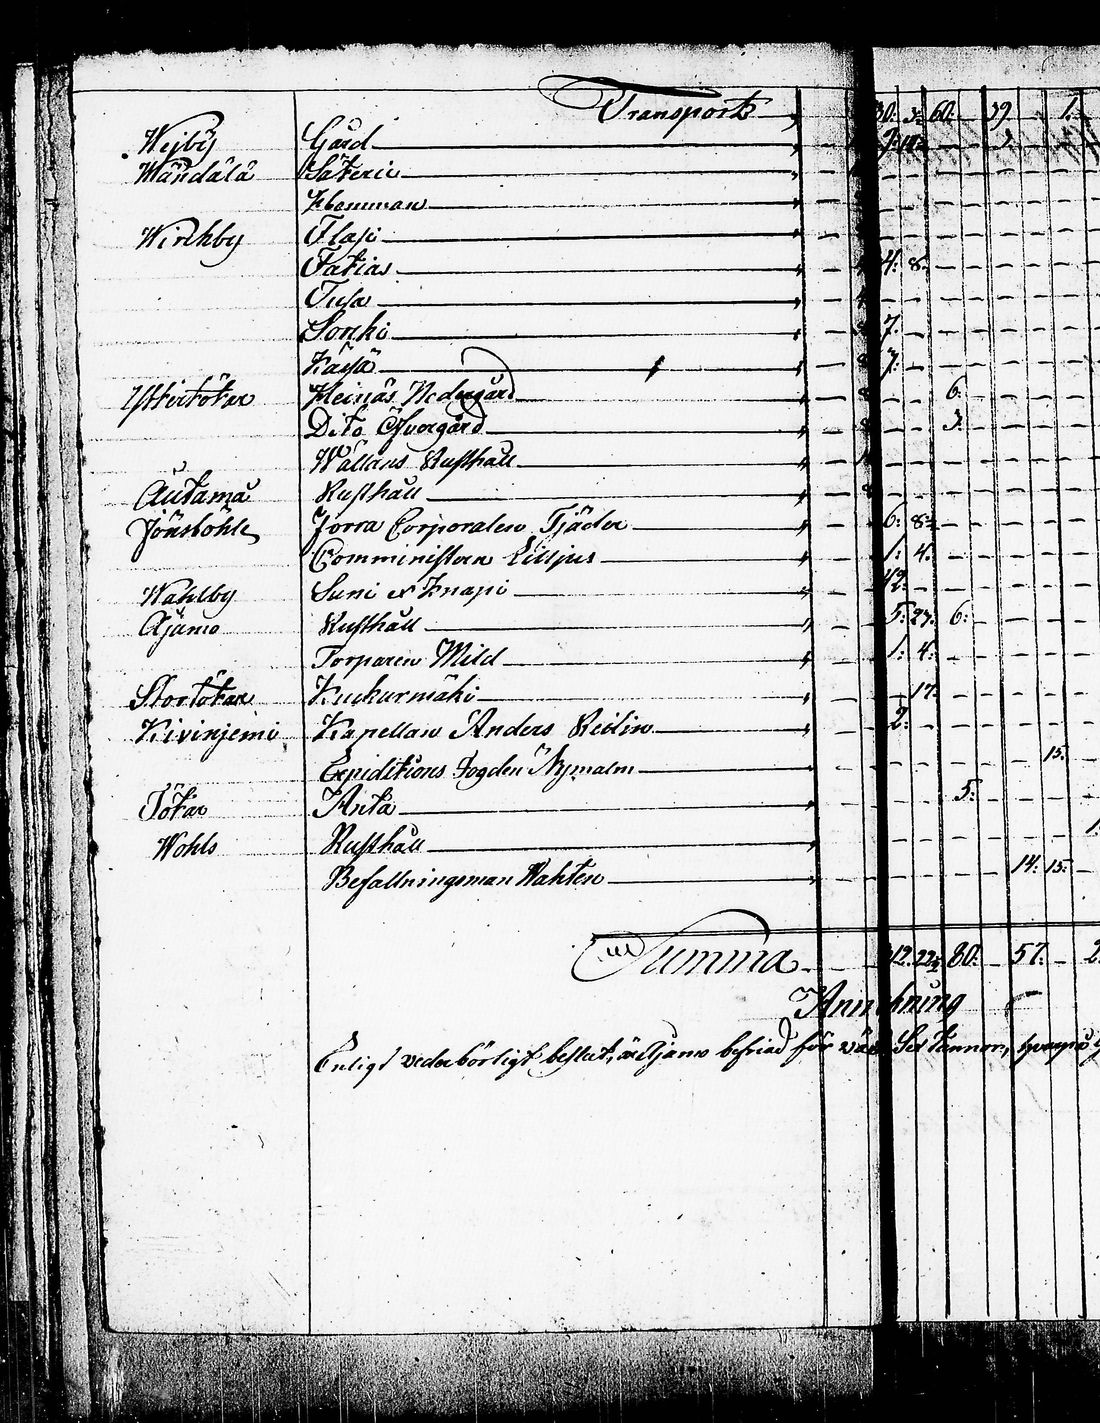 Transport 30: 3: 60: 39 1:
Wejby Gård
Mändälä Säterie
Hemman
Wirckby Flapi
Tatias 4: 8
Tusa
Sorcki 7.
Kässä 7.
Yttertötar Heinäs Nedergård 6:
Dito Öfvergård 3.
Wällans Rusthåll
Autama Rusthåll
Jönsböhle Jorra Corporalen Tjäder 6: 8
Comministern Lilljus 1: 4.
Wahlby Suni et Knapi 42.
Ajamo Rusthåll 5: 27: 6:
Torparen Mild 1: 4:
Stortötar Kuckurmäki 17:
Kivinjemi Kapellan Anders Reilin 2:
Expeditions Fogden Nymalm 15:
Tötar Arita 5:
Wohls Rusthåll 1
Befallningsman Wahten 14: 15:
Summa 12. 22 80: 57: 2
Anmärkning
Enligt vederbörligt beslut, är Ajamo befriad för Sex Tunnor,